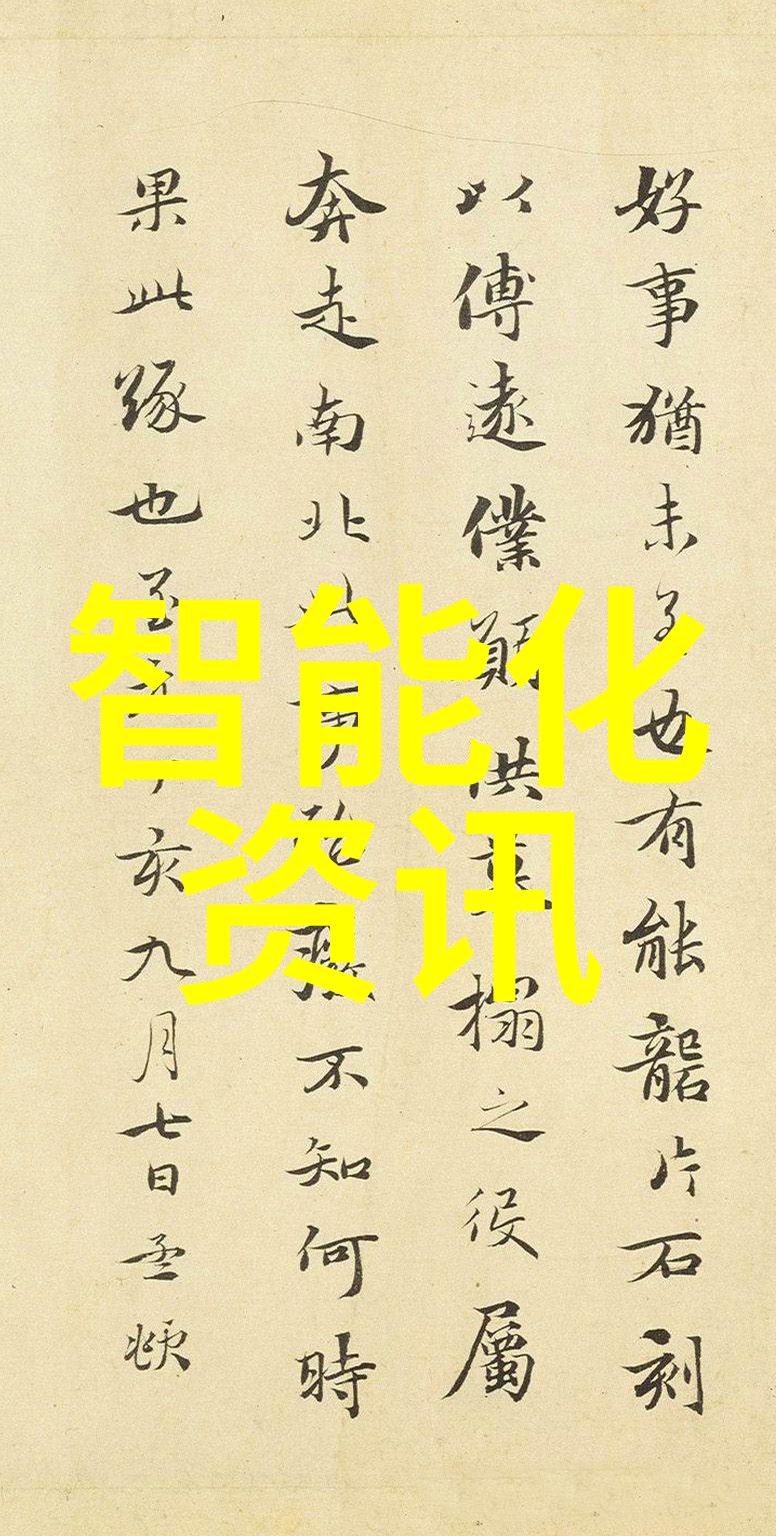 好事猶未了也有能礱片石刻
以傳遠僕願供其搨之役屬
奔走南北此事殆不知何時
果此緣也至九月七日孟頫
智能化
资讯